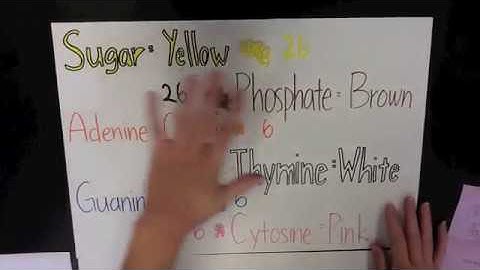 Sugar = Yellow 26
26 Phosphate = Brown
Adenine 6
Thymine = White
6
6 Cytosine = Pink